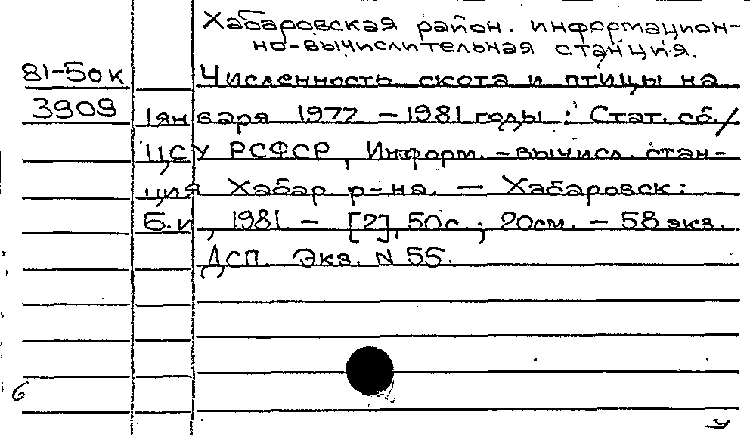 Хабаровская район. информацион-
но-вычислительная станция.
81-50к Численность скота и птицы на
3909 1 января 1977 - 1981 годы : Стат. сб./
ЦСУ РСФСР, Информ.-вычисл. стан-
ция Хабар р-на. — Хабаровск:
Б.и, 1981 - [2], 50с.; 20см. - 58 экз.
ДСП. Экз. N 55.
6